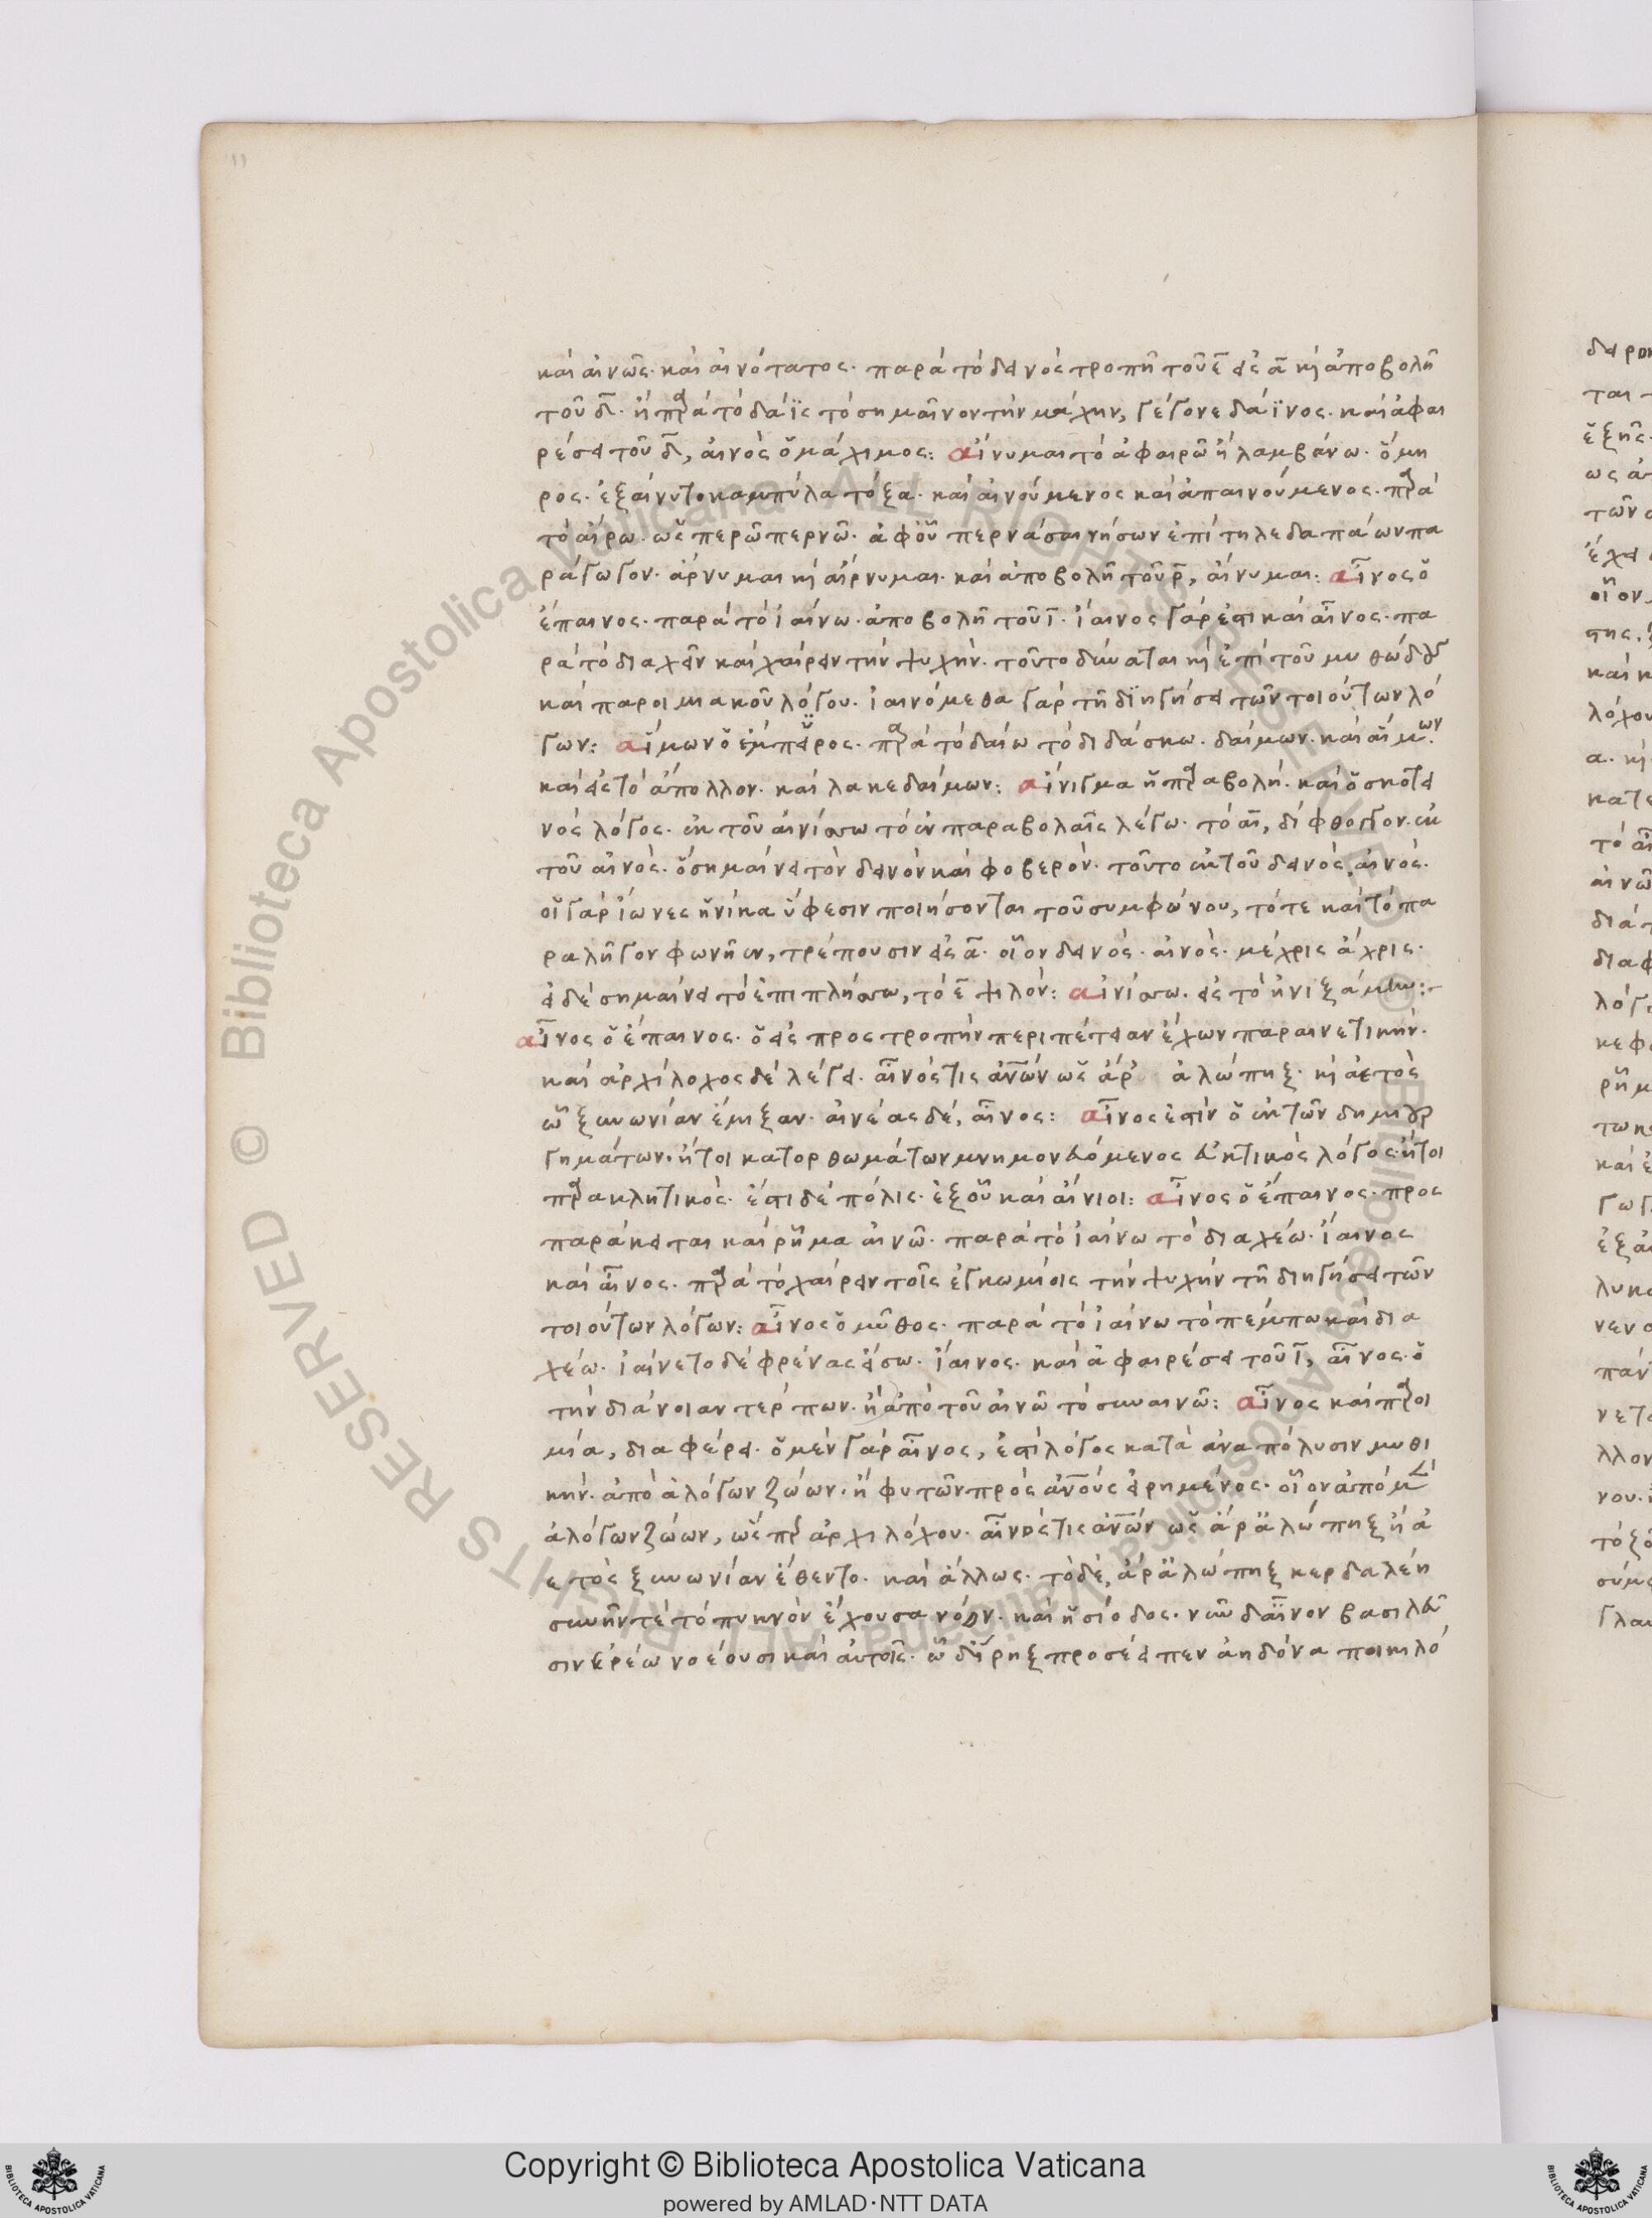 καὶ αἰνῶς· καὶ αἰνότατος· παρὰ τὸ δεινὸς τροπῆ τοῦ ε̄ εἰς ᾱ κὶ ἀποβολῆ
τοῦ δ̄. ἢ πρὰ τὸ δάϊς τὸ σημαῖνον τὴν μάχην, γέγονε δάϊνος· καὶ ἀφαι
ρέσει τοῦ δ̄, αἰνὸς ὁ μάχιμος: αἴνυμαι τὸ ἀφαιρῶ ἢ λαμβάνω· ὅμη
ρος· ἐξαίνυτο καμπύλα τόξα· καὶ αἰνούμενος καὶ ἀπαινούμενος· πρὰ
τὸ αἴρω· ὡς περῶ περνῶ· ἀφ' οὗ περνάσαι νήσων ἐπὶ τηλεδαπάων πα
ράγωγον· ἄρνυμαι κὶ αἴρνυμαι· καὶ ἀποβολῆ τοῦ ρ̄, αἴνυμαι: αἶνος ὁ
ἔπαινος· παρὰ τὸ ἰαίνω· ἀποβολῆ τοῦ ῑ· ἴαινος γάρ ἐστι καὶ αἶνος· πα
ρὰ τὸ διαχεῖν καὶ χαίρειν τὴν ψυχήν· τοῦτο δύναται κὶ ἐπὶ τοῦ μυθώδους
καὶ παροιμιακοῦ λόγου· ἰαινόμεθα γὰρ τῆ διηγήσει τῶν τοιούτων λό
γων: αἵμων ὁ ἔμπειρος· πρὰ τὸ δαίω τὸ διδάσκω· δαίμων· καὶ αἵμων·
καὶ εἰς τὸ ἀπόλλον· καὶ λακεδαίμων: αἴνιγμα ἡ πραβολή· καὶ ὁ σκοτει
νὸς λόγος· ἐκ τοῦ αἰνίσσω τὸ ἐν παραβολαῖς λέγω· τὸ αῑ, δίφθογγον· ἐκ
τοῦ αἰνὸς· ὃ σημαίνει τὸν δεινὸν καὶ φοβερόν· τοῦτο ἐκ τοῦ δεινὸς, αἰνὸς·
οἱ γὰρ ἴωνες ἡνίκα ὕφεσιν ποιήσονται τοῦ συμφώνου, τότε καὶ τὸ πα
ραλῆγον φωνῆεν, τρέπουσιν εἰς ᾱ· οἷον δεινὸς· αἰνὸς· μέχρις ἄχρις·
εἰ δὲ σημαίνει τὸ ἐπιπλήσσω, τὸ ε̄ ψιλόν: αἰνίσσω· εἰς τὸ ἠνιξάμην:-
αἶνος ὁ ἔπαινος· ὁ εἰς προστροπὴν περιπέτειαν ἔχων παραινετικήν·
καὶ ἀρχίλοχος δὲ λέγει· αἶνός τις ἀν̄ων ὡς ἄρ' ἀλώπηξ· κὶ ἀετὸς
ὢ ξυνωνίαν ἔμιξαν· αἰνέας δέ, αἶνος: αἶνος ἐστὶν ὁ ἐκ τῶν δημιουρ
γημάτων· ἤτοι κατορθωμάτων μνημονευόμενος εὐκτικὸς λόγος· ἤτοι
πρακλητικὸς· ἔστι δὲ πόλις· ἐξ οὗ καὶ αἴνιοι: αἶνος ὁ ἔπαινος· προς
παράκειται καὶ ρῆμα αἰνῶ· παρὰ τὸ ἰαίνω τὸ διαχέω· ἴαινος
καὶ αἶνος· πρὰ τὸ χαίρειν τοῖς ἐγκωμίοις τὴν ψυχὴν τῆ διηγήσει τῶν
τοιούτων λόγων: αἶνος ὁ μῦθος· παρὰ τὸ ἰαίνω τὸ πέμπω καὶ δια
χέω· ἰαίνετο δὲ φρένας εἴσω· ἴαινος· καὶ ἀφαιρέσει τοῦ ῑ, αἶνος· ὁ
τὴν διάνοιαν τέρπων· ἢ ἀπὸ τοῦ αἰνῶ τὸ συναινῶ: αἶνος καὶ προι
μία, διαφέρει· ὁ μὲν γὰρ αἶνος, ἐστὶ λόγος κατὰ ἀναπόλυσιν μυθι
κήν· ἀπὸ ἀλόγων ζώων· ἢ φυτῶν πρὸς ἀν̄ους εἰρημένος· οἷον ἀπὸ μὲν
ἀλόγων ζώων, ὡς πρ ἀρχιλόχου· αἶνος τις ἀν̄ων ὡς ἄρ ἀλώπηξ ἠ ἀ
ετὸς ξυνωνίαν ἔθεντο· καὶ ἄλλως· τὸ δέ, ἄρ ἀλώπηξ κερδαλέη
συνῆντε τὸ πυκνὸν ἔχουσα νόον· καὶ ἡσίοδος· νῦν δ' αἶνον βασιλεῦ
σιν ἐρέω νοέουσι καὶ αὐτοῖς· ὧδ' ἴρηξ προσέειπεν ἀηδόνα ποικιλό